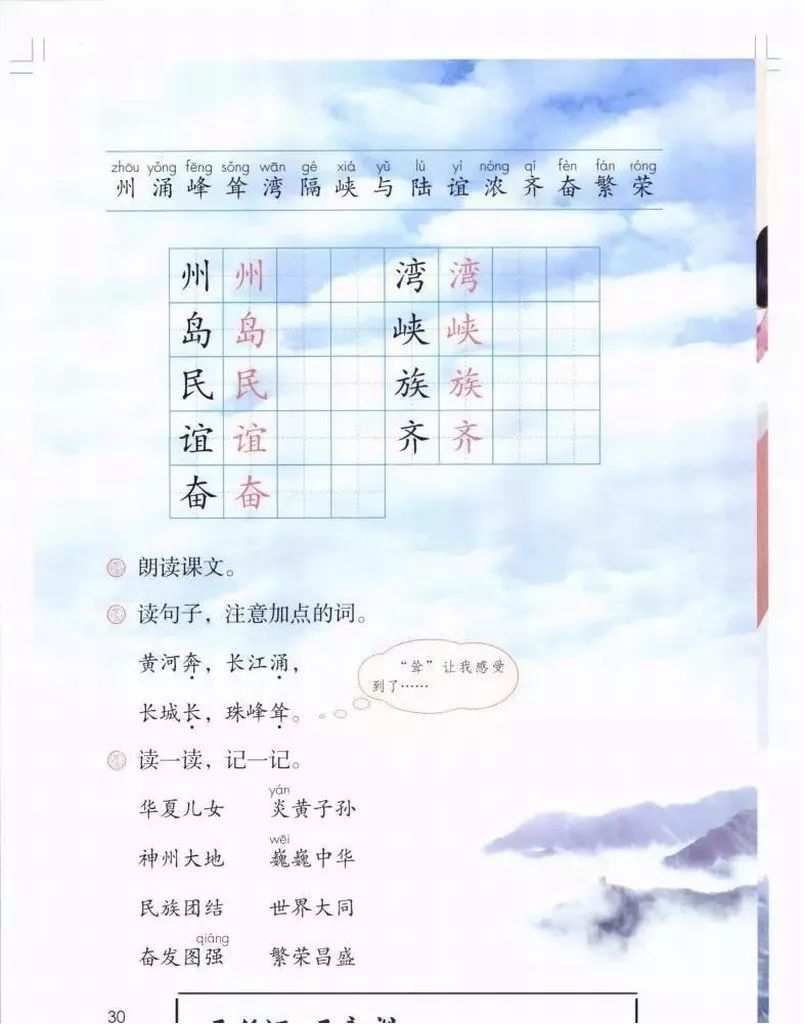 zhōu yǒng fēng sǒng wān gé xiá yǔ lù yì nóng qí fèn fán róng
州 涌 峰 耸 湾 隔 峡 与 陆 谊 浓 齐 奋 繁 荣
州 州 湾 湾
岛 岛 峡 峡
民 民 族 族
谊 谊 齐 齐
奋 奋
朗读课文。
读句子，注意加点的词。
黄河奔，长江涌，
长城长，珠峰耸。
“耸”让我感受
到了……
读一读，记一记。
yán
华夏儿女 炎黄子孙
wēi
神州大地 巍巍中华
民族团结 世界大同
qiáng
奋发图强 繁荣昌盛
30